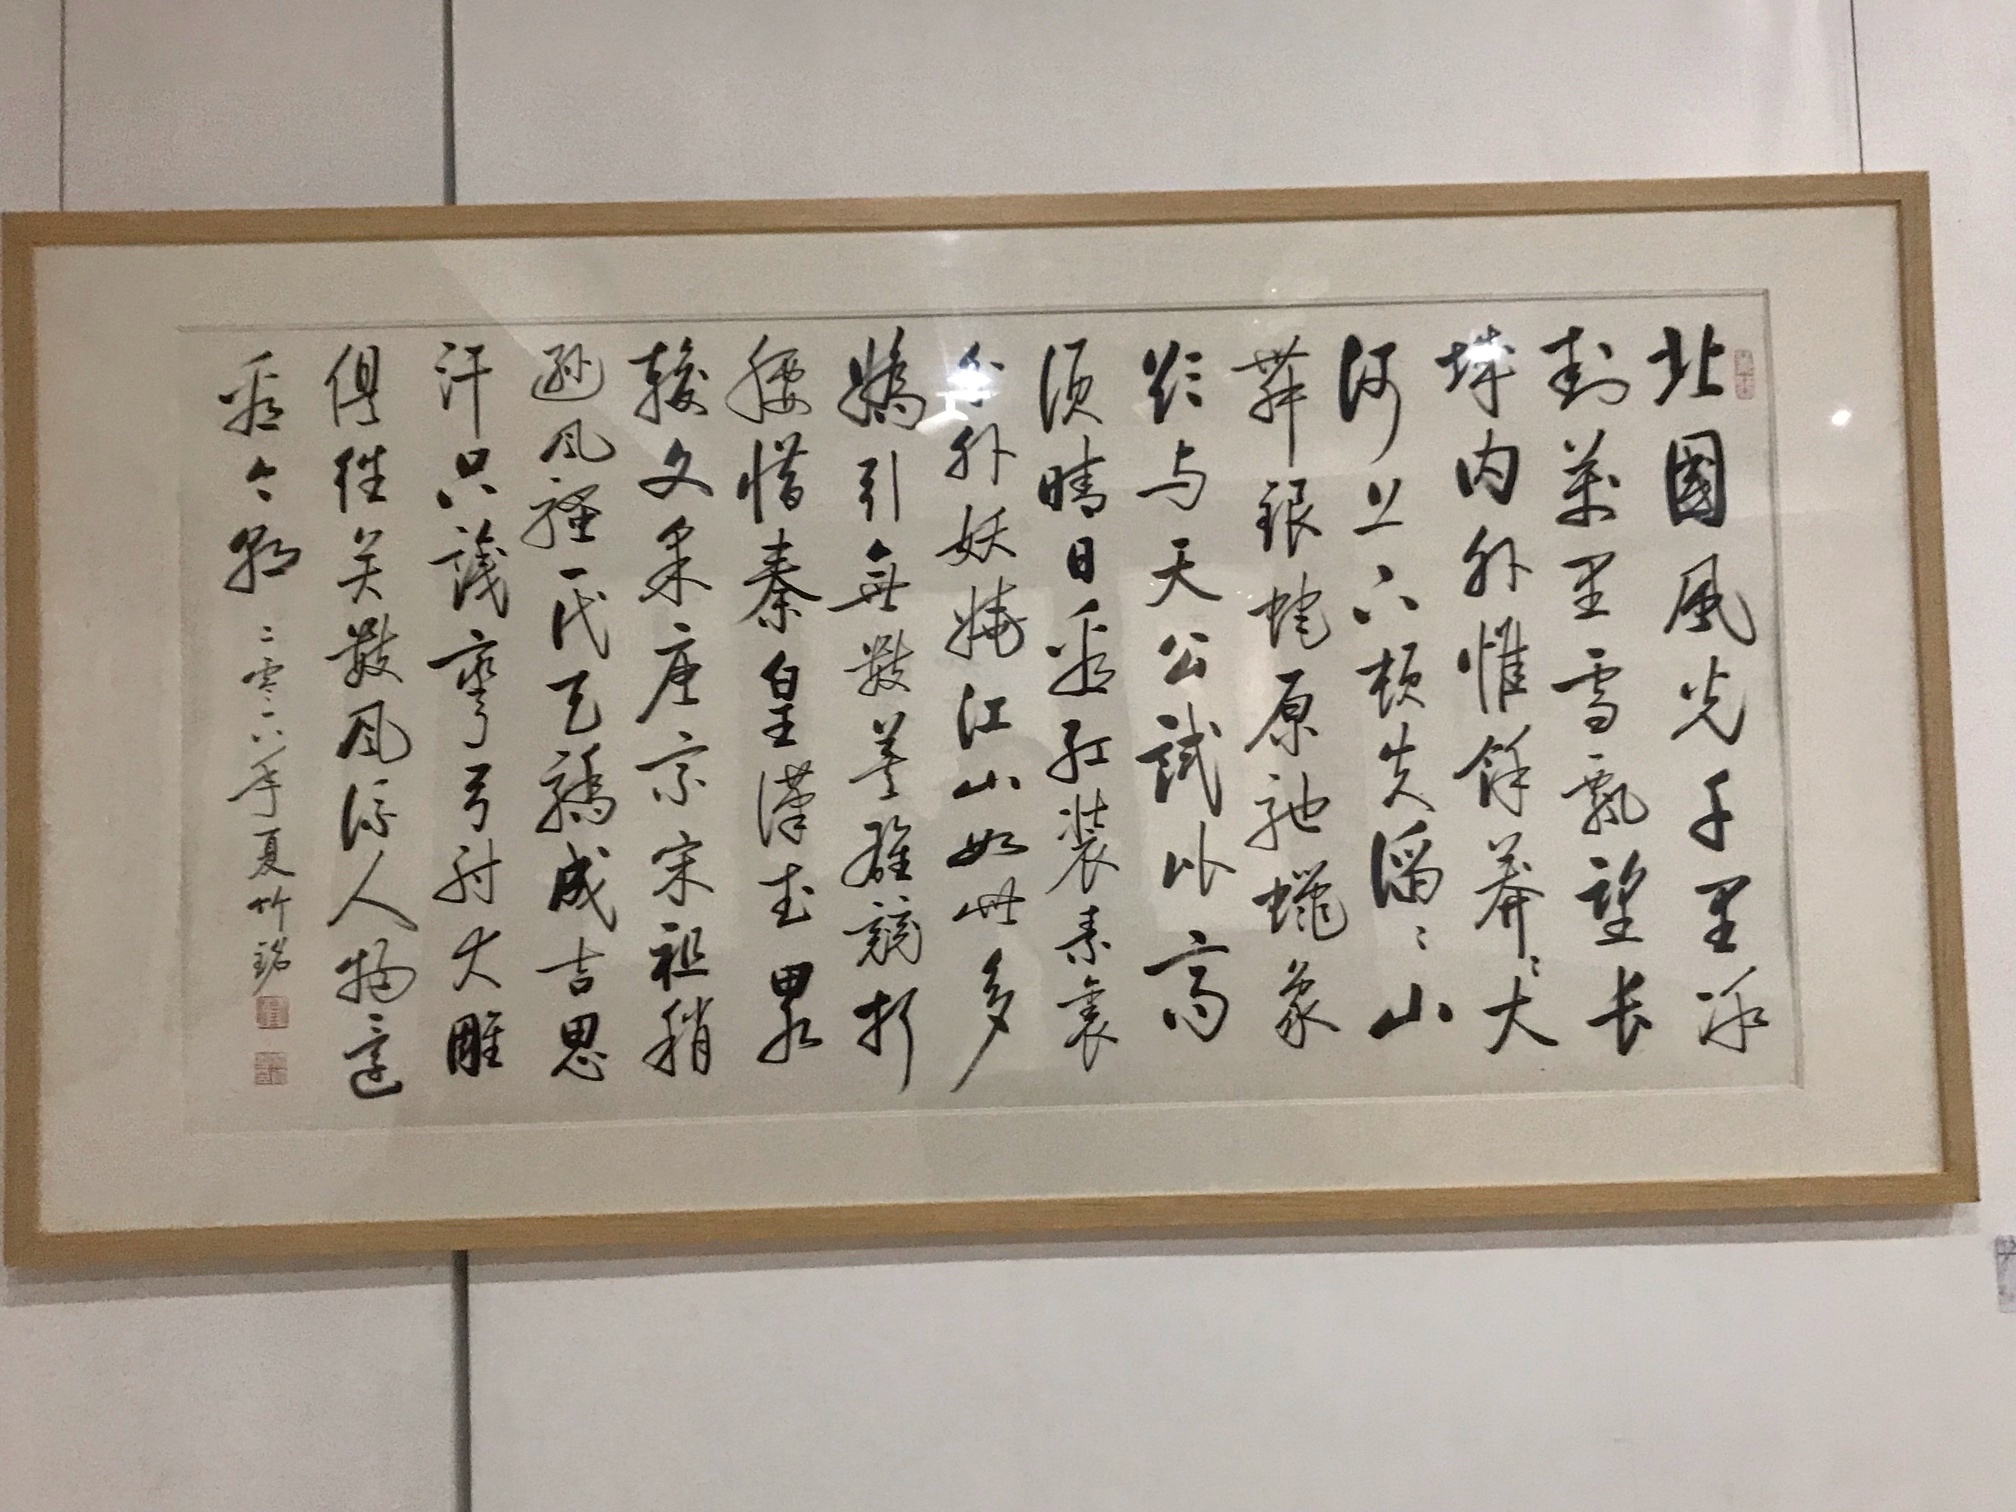 北國風光千里冰
封萬里雪飄望长
城内外惟餘莽〻大
河上下頓失滔〻山
舞銀蛇原馳蠟象
欲与天公試比高
須晴日看紅裝素裹
分外妖嬈江山如此多
嬌引無數英雄競折
腰惜秦皇漢武畧
輸文采唐宗宋祖稍
遜風騷一代天驕成吉思
汗只識彎弓射大雕
俱往矣數風流人物還
看今朝
二零一八年夏竹銘